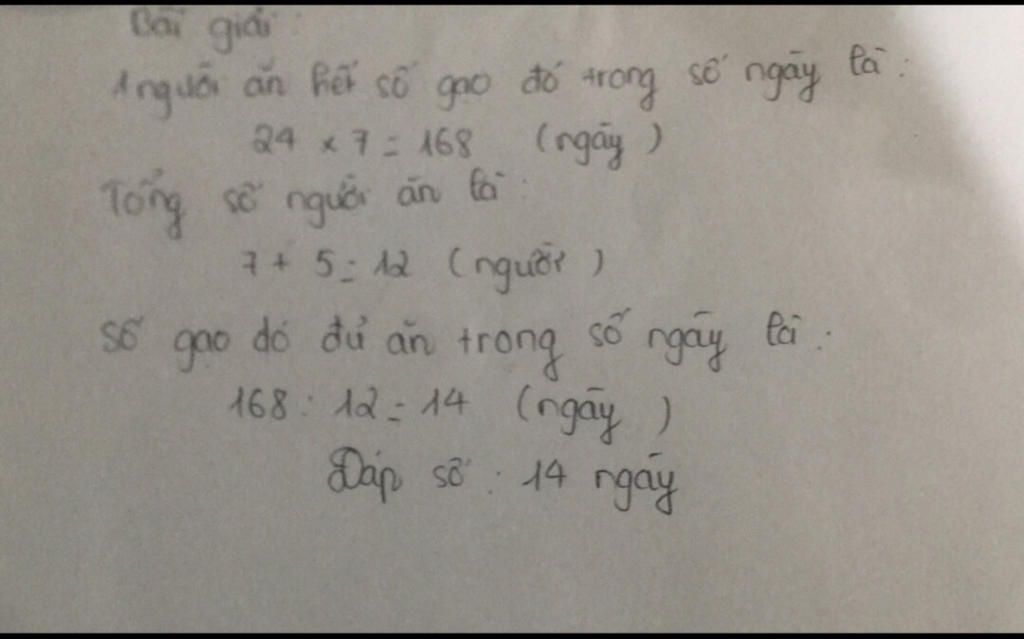 Bài giải:
1 người ăn hết số gạo đó trong số ngày là:
24 x 7 = 168 (ngày)
Tổng số người ăn là:
7 + 5 = 12 (người)
Số gạo đó đủ ăn trong số ngày là:
168 : 12 = 14 (ngày)
Đáp số: 14 ngày